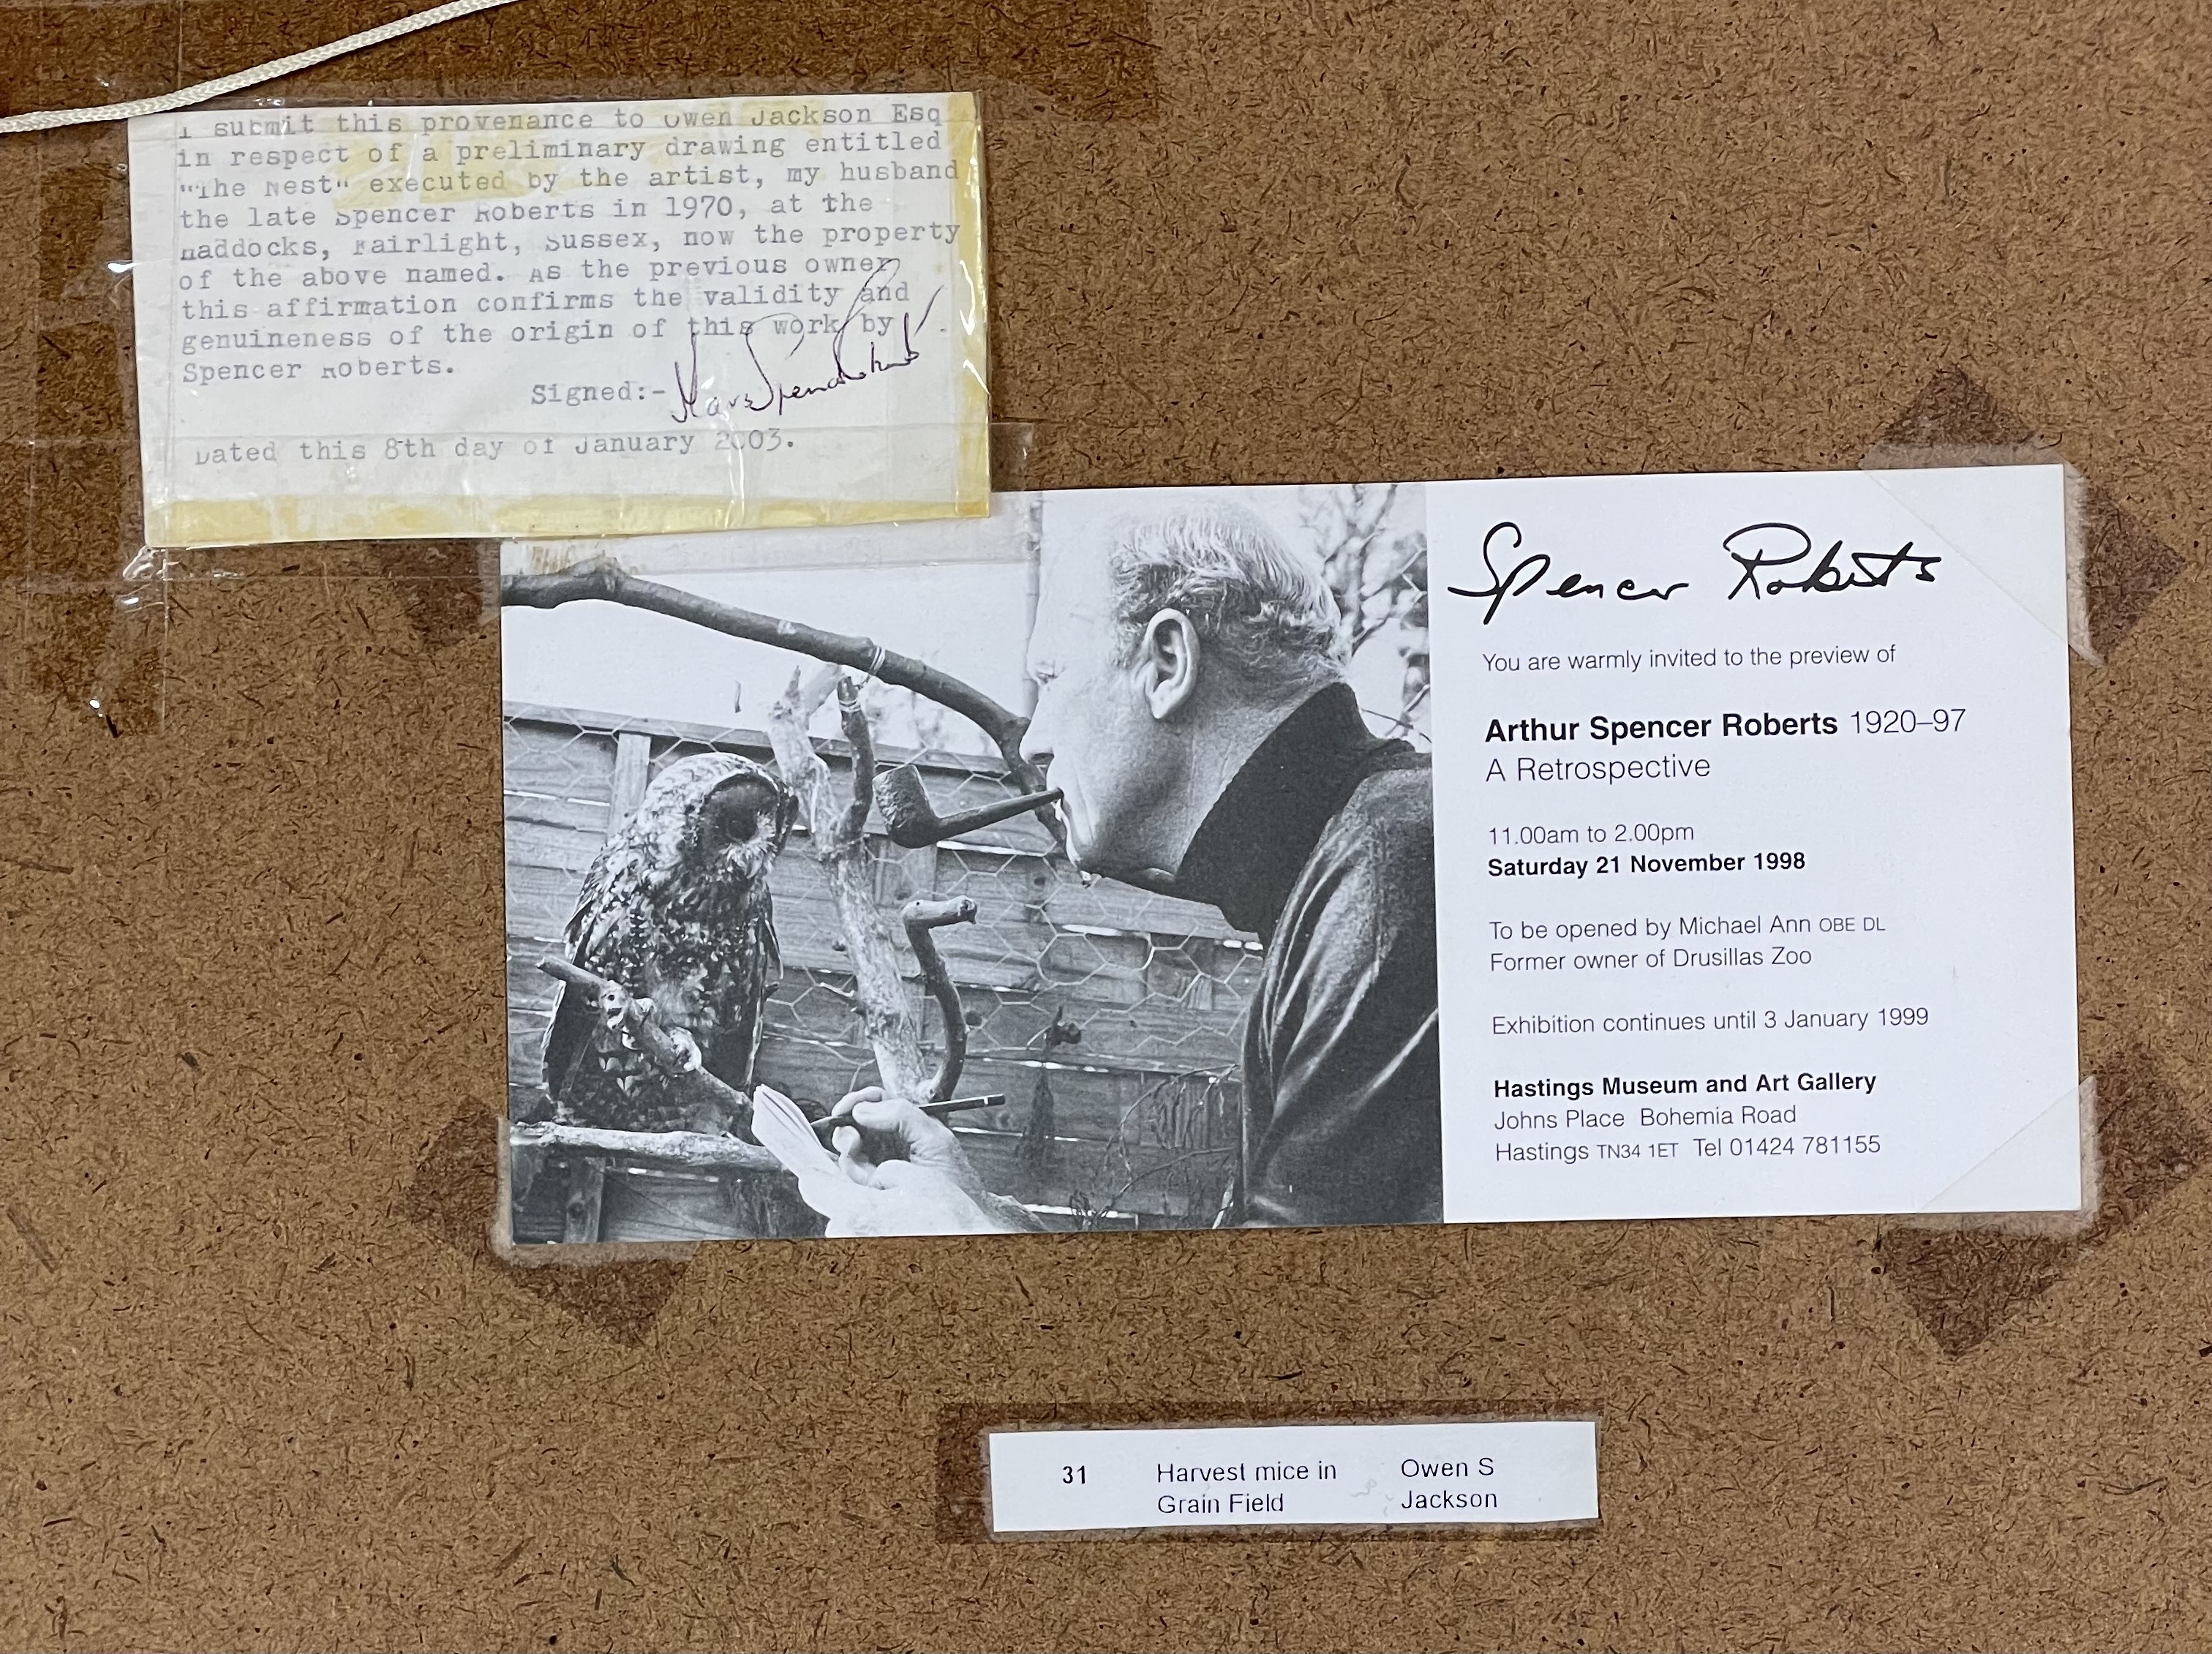 I submit this provenance to Owen Jackson Esq
in respect of a preliminary drawing entitled
"The Nest" executed by the artist, my husband
the late Spencer Roberts in 1970, at the
Haddocks, Fairlight, Sussex, now the property
of the above named. As the previous owner
this affirmation confirms the validity and
genuineness of the origin of this work by
Spencer Roberts.
Signed:-
Dated this 8th day of January 2003.
Spencer Roberts
You are warmly invited to the preview of
Arthur Spencer Roberts 1920–97
A Retrospective
11.00am to 2.00pm
Saturday 21 November 1998
To be opened by Michael Ann OBE DL
Former owner of Drusillas Zoo
Exhibition continues until 3 January 1999
Hastings Museum and Art Gallery
Johns Place Bohemia Road
Hastings TN34 1ET Tel 01424 781155
31 Harvest mice in Owen S
Grain Field Jackson